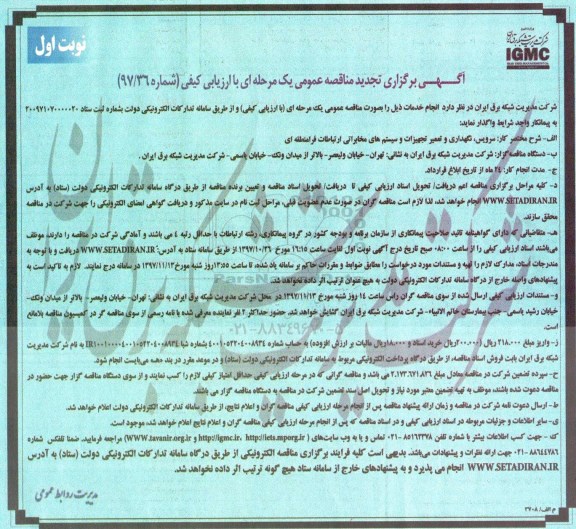 شرکت مدیریت شبکه برق ایران
IGMC
IRAN GRID MANAGEMENT CO.
نوبت اول
آگهـی برگزاری تجدید مناقصه عمومی یک مرحله ای با ارزیابی کیفی (شماره ۹۷/۳۶)
شرکت مدیریت شبکه برق ایران در نظر دارد انجام خدمات ذیل را بصورت مناقصه عمومی یک مرحله ای (با ارزیابی کیفی) و از طریق سامانه تدارکات الکترونیکی دولت بشماره ثبت ستاد ۲۰۰۹۷۱۰۷۰۰۰۰۰۲۰
به پیمانکار واجد شرایط واگذار نماید:
الف- شرح مختصر کار: سرویس، نگهداری و تعمیر تجهیزات و سیستم های مخابراتی ارتباطات فرامنطقه ای
ب- دستگاه مناقصه گزار: شرکت مدیریت شبکه برق ایران به نشانی: تهران- خیابان ولیعصر- بالاتر از میدان ونک- خیابان یاسمی- شرکت مدیریت شبکه برق ایران.
ج- مدت انجام کار: ۲۴ ماه از تاریخ ابلاغ قرارداد.
د- کلیه مراحل برگزاری مناقصه اعم دریافت/ تحویل اسناد ارزیابی کیفی تا دریافت/ تحویل اسناد مناقصه و تعیین برنده مناقصه از طریق درگاه سامانه تدارکات الکترونیکی دولت (ستاد) به آدرس
WWW.SETADIRAN.IR انجام خواهد شد، لذا لازم است مناقصه گران در صورت عدم عضویت قبلی، مراحل ثبت نام در سایت مذکور و دریافت گواهی امضای الکترونیکی را جهت شرکت در مناقصه
محقق سازند.
هـ- متقاضیانی که دارای گواهینامه تائید صلاحیت پیمانکاری از سازمان برنامه و بودجه کشور در گروه پیمانکاری، رشته ارتباطات با حداقل رتبه ۴ می باشند و آمادگی شرکت در مناقصه را دارند، موظف
می‌باشند اسناد ارزیابی کیفی را از ساعت ۰۸:۰۰ صبح تاریخ درج آگهی نوبت اول لغایت ساعت ۱۶:۱۵ مورخ ۱۳۹۷/۱۰/۲۶ از طریق سامانه ستاد به آدرس: WWW.SETADIRAN.IR دریافت و با توجه به
مندرجات اسناد، مدارک لازم را تهیه و مستندات مورد درخواست را مطابق ضوابط و مقررات حاکم بر سامانه یاد شده، تا ساعت ۱۳:۵۵ روز شنبه مورخ ۱۳۹۷/۱۱/۱۳ در سامانه درج نمایند. لازم به تاکید است به
پیشنهادهای واصله خارج از درگاه سامانه تدارکات الکترونیکی دولت به هیچ عنوان ترتیب اثر داده نخواهد شد.
و- مستندات ارزیابی کیفی ارسال شده از سوی مناقصه گران راس ساعت ۱۴ روز شنبه مورخ ۱۳۹۷/۱۱/۱۳ در محل شرکت مدیریت شبکه برق ایران به نشانی: تهران- خیابان ولیعصر- بالاتر از میدان ونک-
خیابان رشید یاسمی- جنب بیمارستان خاتم الانبیاء- شرکت مدیریت شبکه برق ایران گشایش خواهد یافت. حضور حداکثر ۲ نفر نماینده معرفی شده با نامه رسمی از سوی مناقصه گر در کمیسیون مناقصه بلامانع
است.
ز- واریز مبلغ ۲۱۸،۰۰۰ ریال به نام شرکت مدیریت
شبکه برق ایران بابت فروش اسناد مناقصه، از طریق درگاه پرداخت الکترونیکی مربوط به سامانه تدارکات الکترونیکی دولت (ستاد) و در موعد مقرر در بند «هـ» می‌بایست انجام شود.
ح- سپرده تضمین شرکت در مناقصه معادل مبلغ ۲،۱۷۳،۶۷۱،۸۳۶ می باشد و مناقصه گرانی که در مرحله ارزیابی کیفی حداقل امتیاز کیفی لازم را کسب نمایند و از سوی دستگاه مناقصه گزار جهت حضور در
مناقصه دعوت شده باشند، موظف به تهیه تضمین معتبر مورد نیاز و تحویل اصل سند تضمین شرکت در مناقصه به دستگاه مناقصه گزار می باشند.
ط- ارسال دعوت نامه شرکت در مناقصه و زمان ارائه پیشنهاد مناقصه پس از انجام مرحله ارزیابی کیفی مناقصه گران و اعلام نتایج، از طریق سامانه تدارکات الکترونیکی دولت اعلام خواهد شد.
ی- سایر اطلاعات و جزئیات مربوطه در اسناد ارزیابی کیفی و در اسناد مناقصه که پس از انجام مرحله ارزیابی کیفی مناقصه گران و اعلام نتایج اعلام خواهد شد، موجود است.
ک- جهت کسب اطلاعات بیشتر با شماره تلفن ۸۵۱۶۲۳۳۸ -۰۲۱ تماس و یا به وب سایت‌های (http://iets.mporg.ir و http://igmc.ir و WWW.tavanir.org.ir) مراجعه فرمایید. ضمنا تلفکس شماره
۸۸۶۴۴۷۸۶ -۰۲۱ جهت ارائه نظرات و پیشنهادات می‌باشد. بدیهی است کلیه فرایند برگزاری مناقصه الکترونیکی از طریق درگاه سامانه تدارکات الکترونیکی دولت (ستاد) به آدرس
WWW.SETADIRAN.IR انجام می پذیرد و به پیشنهادهای خارج از سامانه ستاد هیچ گونه ترتیب اثر داده نخواهد شد.
مدیریت روابط عمومی
م الف/ ۳۷۰۸